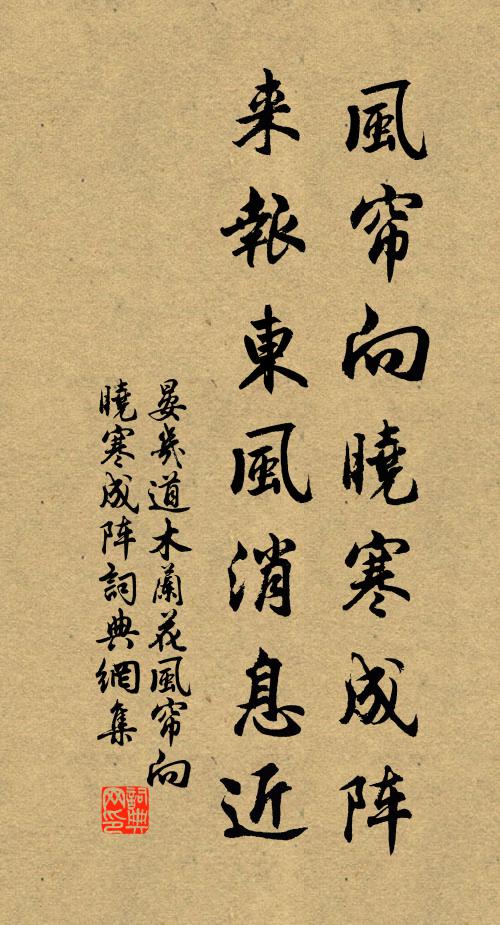 風帘向曉寒成阵
来報東風消息近
晏幾道木蘭花風帘向
曉寒成阵詞典網集
詞典
网印